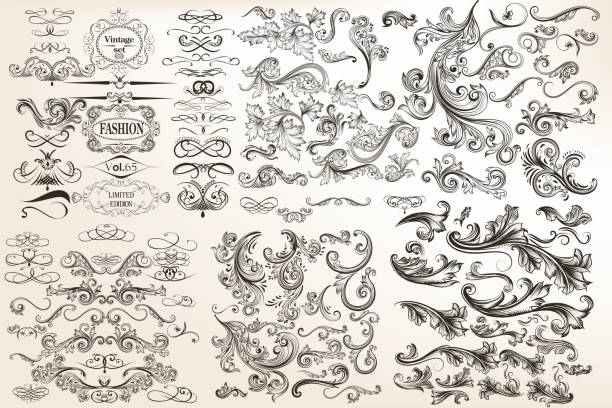 Vintage
set
FASHION
Vol.65
LIMITED
EDIDION